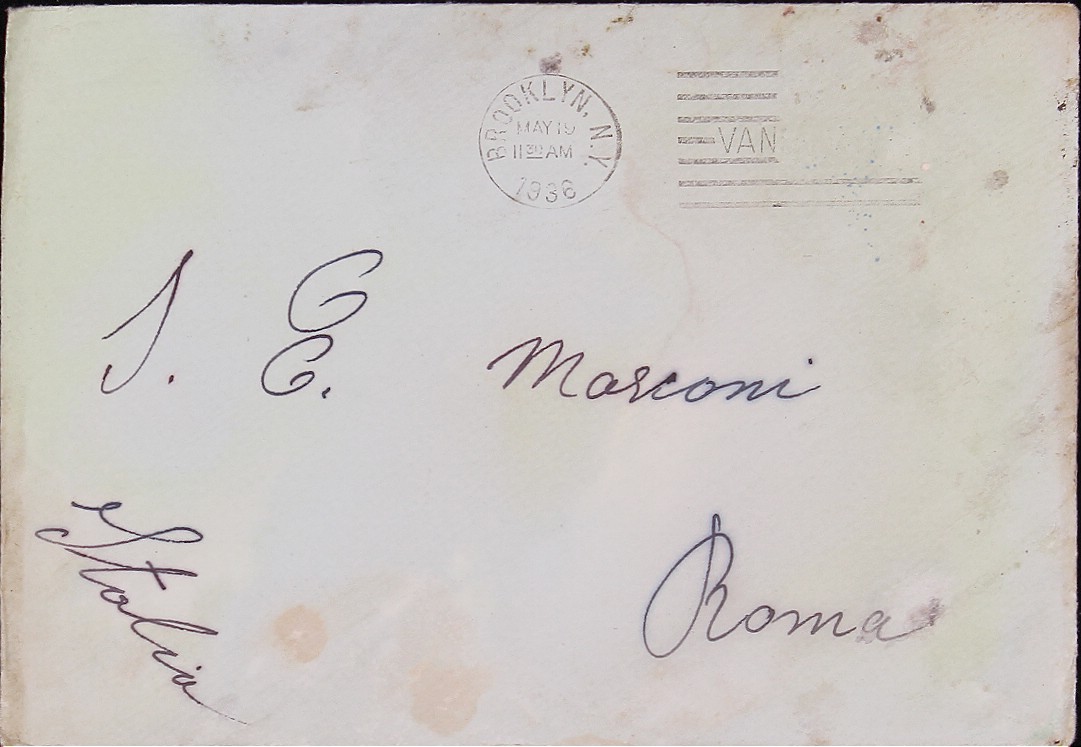 BROOKLYN, N.Y.
MAY 19
11 30 AM
1936
VAN
S. E. Marconi
Roma
Italia